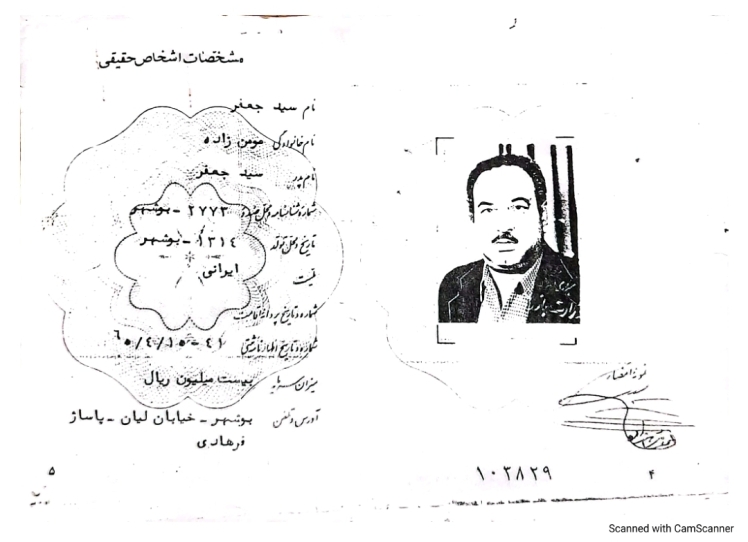 مشخصات اشخاص حقیقی
نام سید جعفر
نام خانوادگی مومن زاده
نام پدر سید جعفر
شماره شناسنامه و محل صدور ۲۷۷۳ - بوشهر
تاریخ و محل تولد ۱۳۱۴ - بوشهر
تبعیت ایرانی
شماره و تاریخ پروانه اقامت
شماره و تاریخ اظهارنامه ثبتی ۴۱ - ۶۰/۴/۱۵
میزان سرمایه بیست میلیون ریال
آدرس و تلفن بوشهر - خیابان لیان - پاساژ
فرهادی
۵
نمونه امضاء
۱۰۳۸۲۹
۴
Scanned with CamScanner